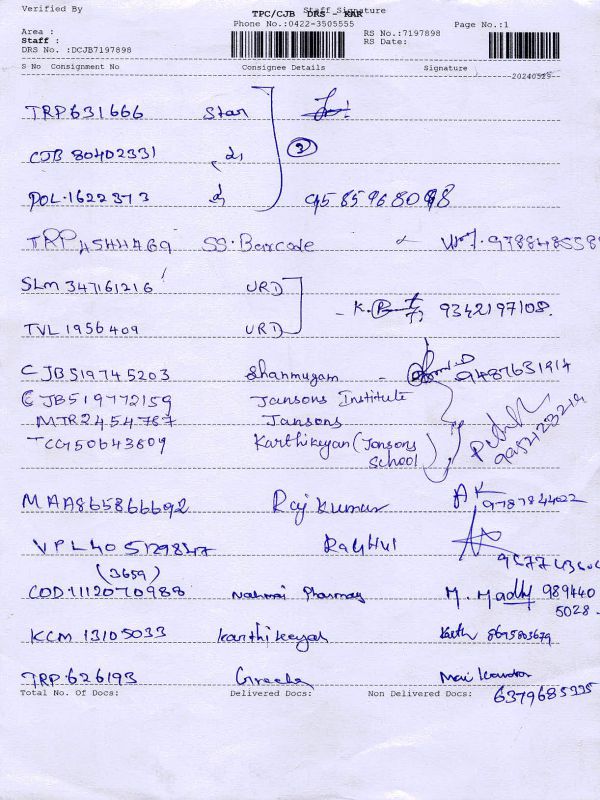 Verified By
Staff Signature
TPC/CJB DRS - KAR
Phone No.:0422-3505555
Page No.:1
Area :
Staff :
DRS No. :DCJB7197898
RS No.:7197898
RS Date:
S No Consignment No Consignee Details Signature
20240529
TRP631666 Star
CJB 80402331
3
POL.1622373 9585968098
TRP4544469 SS.Barcode
SLM 347161216 URD
K. 9342197108.
TVL 1956409 URD
CJB519745203 Shanmugam - 9487631914
CJB519772159 Jansons Institute
MTR2454767 Jansons
Karthikeyan (Jansons School)
MAA865866692 Rajkumar AK
VPL405129847 Raghul
(3659)
COD1112070988 Pharmacy M. Madhy 989440
5028.
KCM 13105033 Karthikeyan Karth 8695803679
TRP.626193
Total No. Of Docs: Delivered Docs: Non Delivered Docs:
6379685335